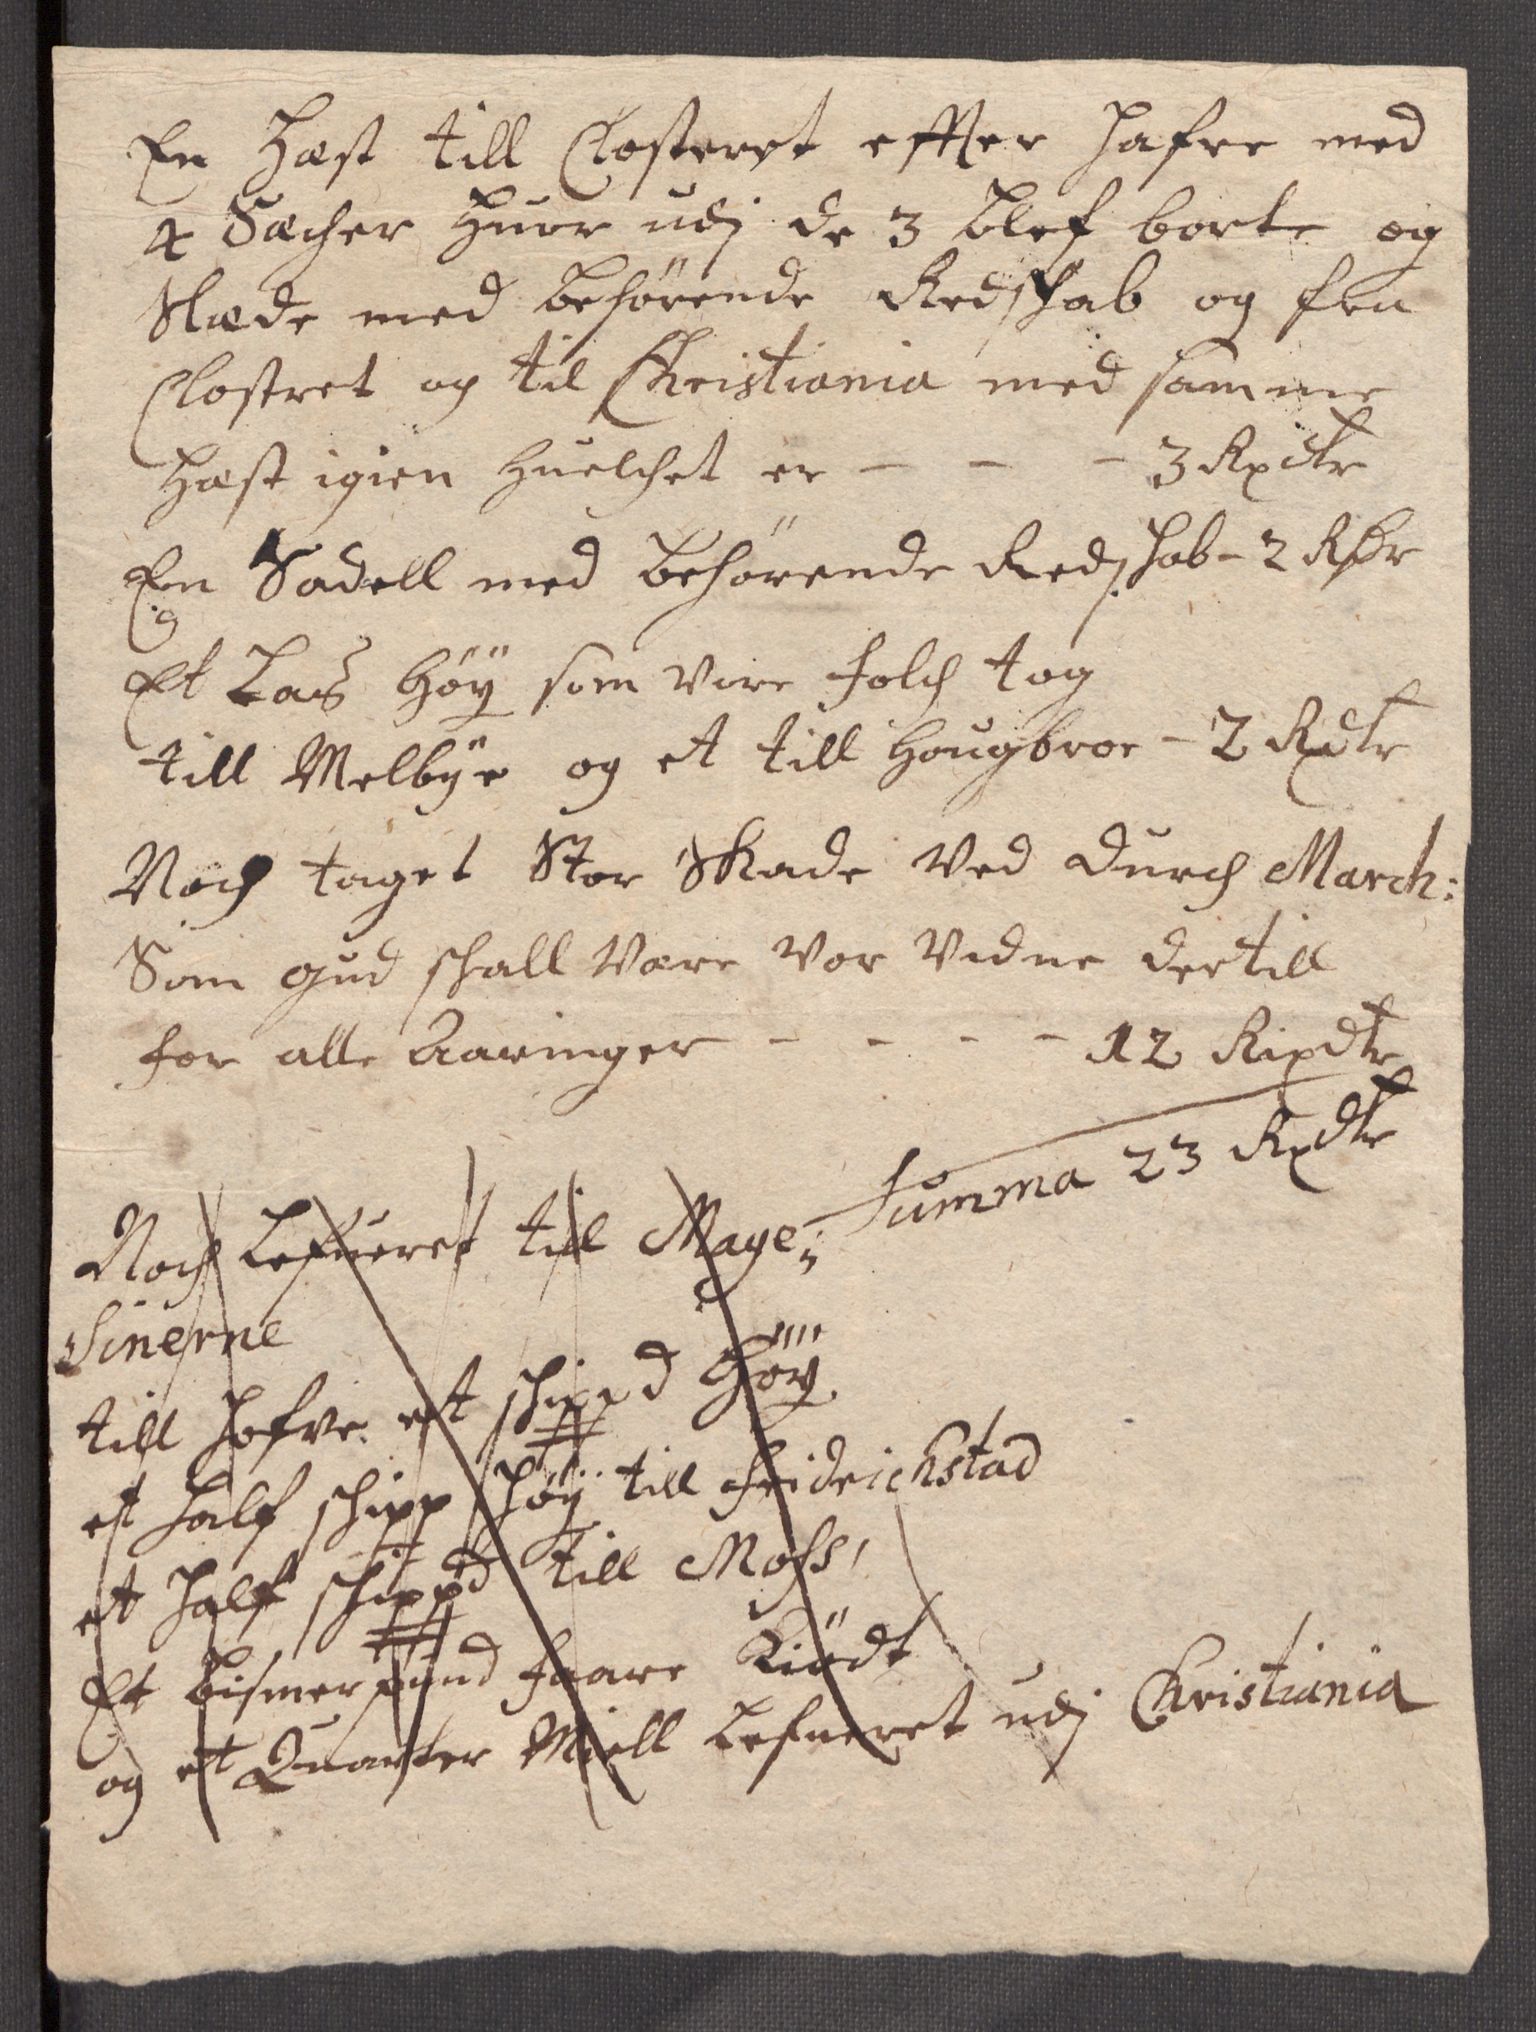 En Hæst till Closteret effter Hafre med
4 Sæcher Huor udj de 3 blef borte og
Slæde med behörende Redschab og fra
Clostret og til Christiania med samme
Hæst igien Huelchet er - - - 3 Rixdlr
En Sadell med behörende Redschab - 2 Rdr
Et Las Höÿ som vore folch tog
till Melbÿe og et till Hougbroe - 2 Rdlr
Noch taget Stor Skade Ved Durch March:
Som gud schall Være Vor Vidne dertill
for alle Aaringer - - - - 12 Rixdlr
Summa 23 Rxdlr
Noch Lefueret til Mage;
Sinerne
till Hofve et schippd Höÿ
et half schipp Höÿ till Fridrichstad
et half schippd till Moss,
Et bismerpund faare Kiödt
og et Quarter Miell Lefueret udj Christiania